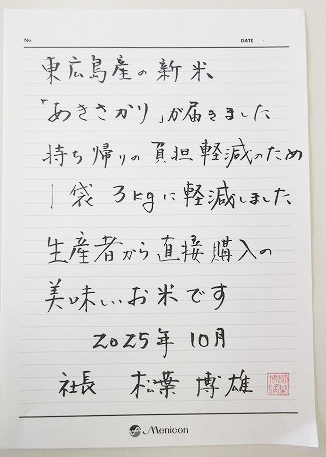 No
DATE
東広島産の新米
「あきさかり」が届きました
持ち帰りの負担軽減のため
1袋 3kgに軽減しました
生産者から直接購入の
美味しいお米です
2025年 10月
社長 松葉 博雄
Menicon